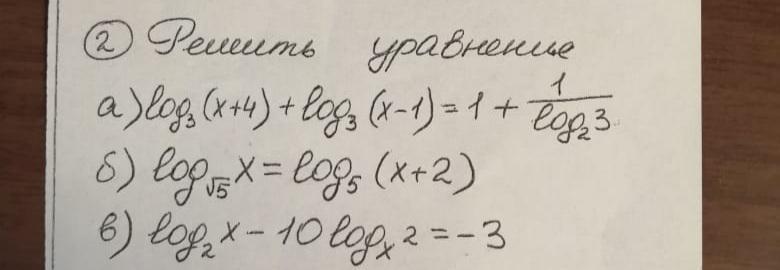 ② Решить уравнение
а) log₃(x+4) + log₃(x-1) = 1 + 1/log₂3
б) log_√5 x = log₅(x+2)
в) log₂x - 10 logₓ2 = -3